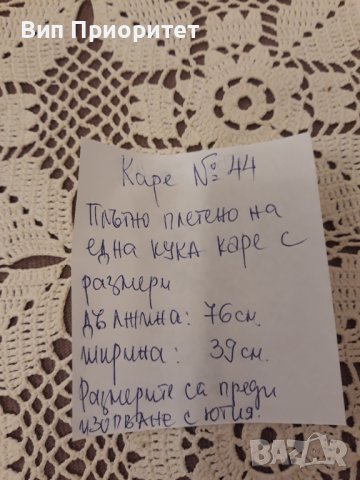 Вип Приоритет
Каре № 44
Плътно плетено на
една кука каре с
размери
дължина: 76см.
ширина: 39см.
Размерите са преди
изопване с ютия.
BAZAR